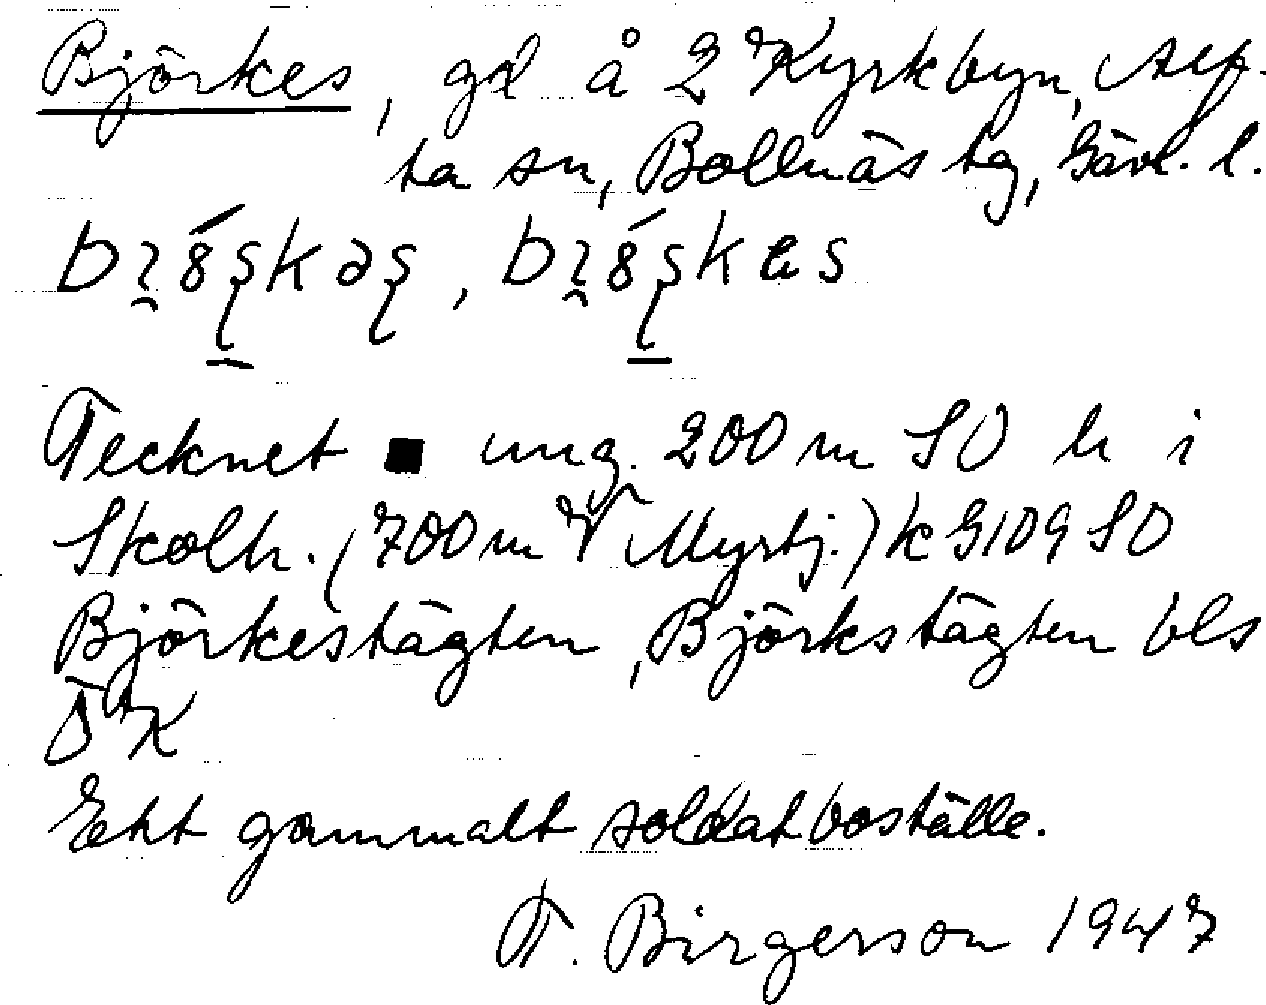 Björkes, gd å 2 Kyrkbyn, Alf-
ta sn, Bollnäs tg, Gävl. l.
Tecknet ■ ung. 200 m SO h i
Skolh. (700 m V Myrbj.) k G109 SO
Björkestägten, Björkstägten bls
ÖK
Ett gammalt soldatboställe.
T. Birgerson 1947